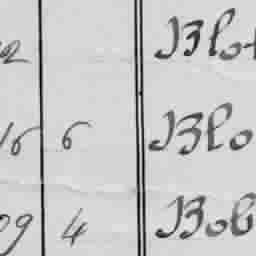 2 Blot
16 6 Blo
09 4 Bob